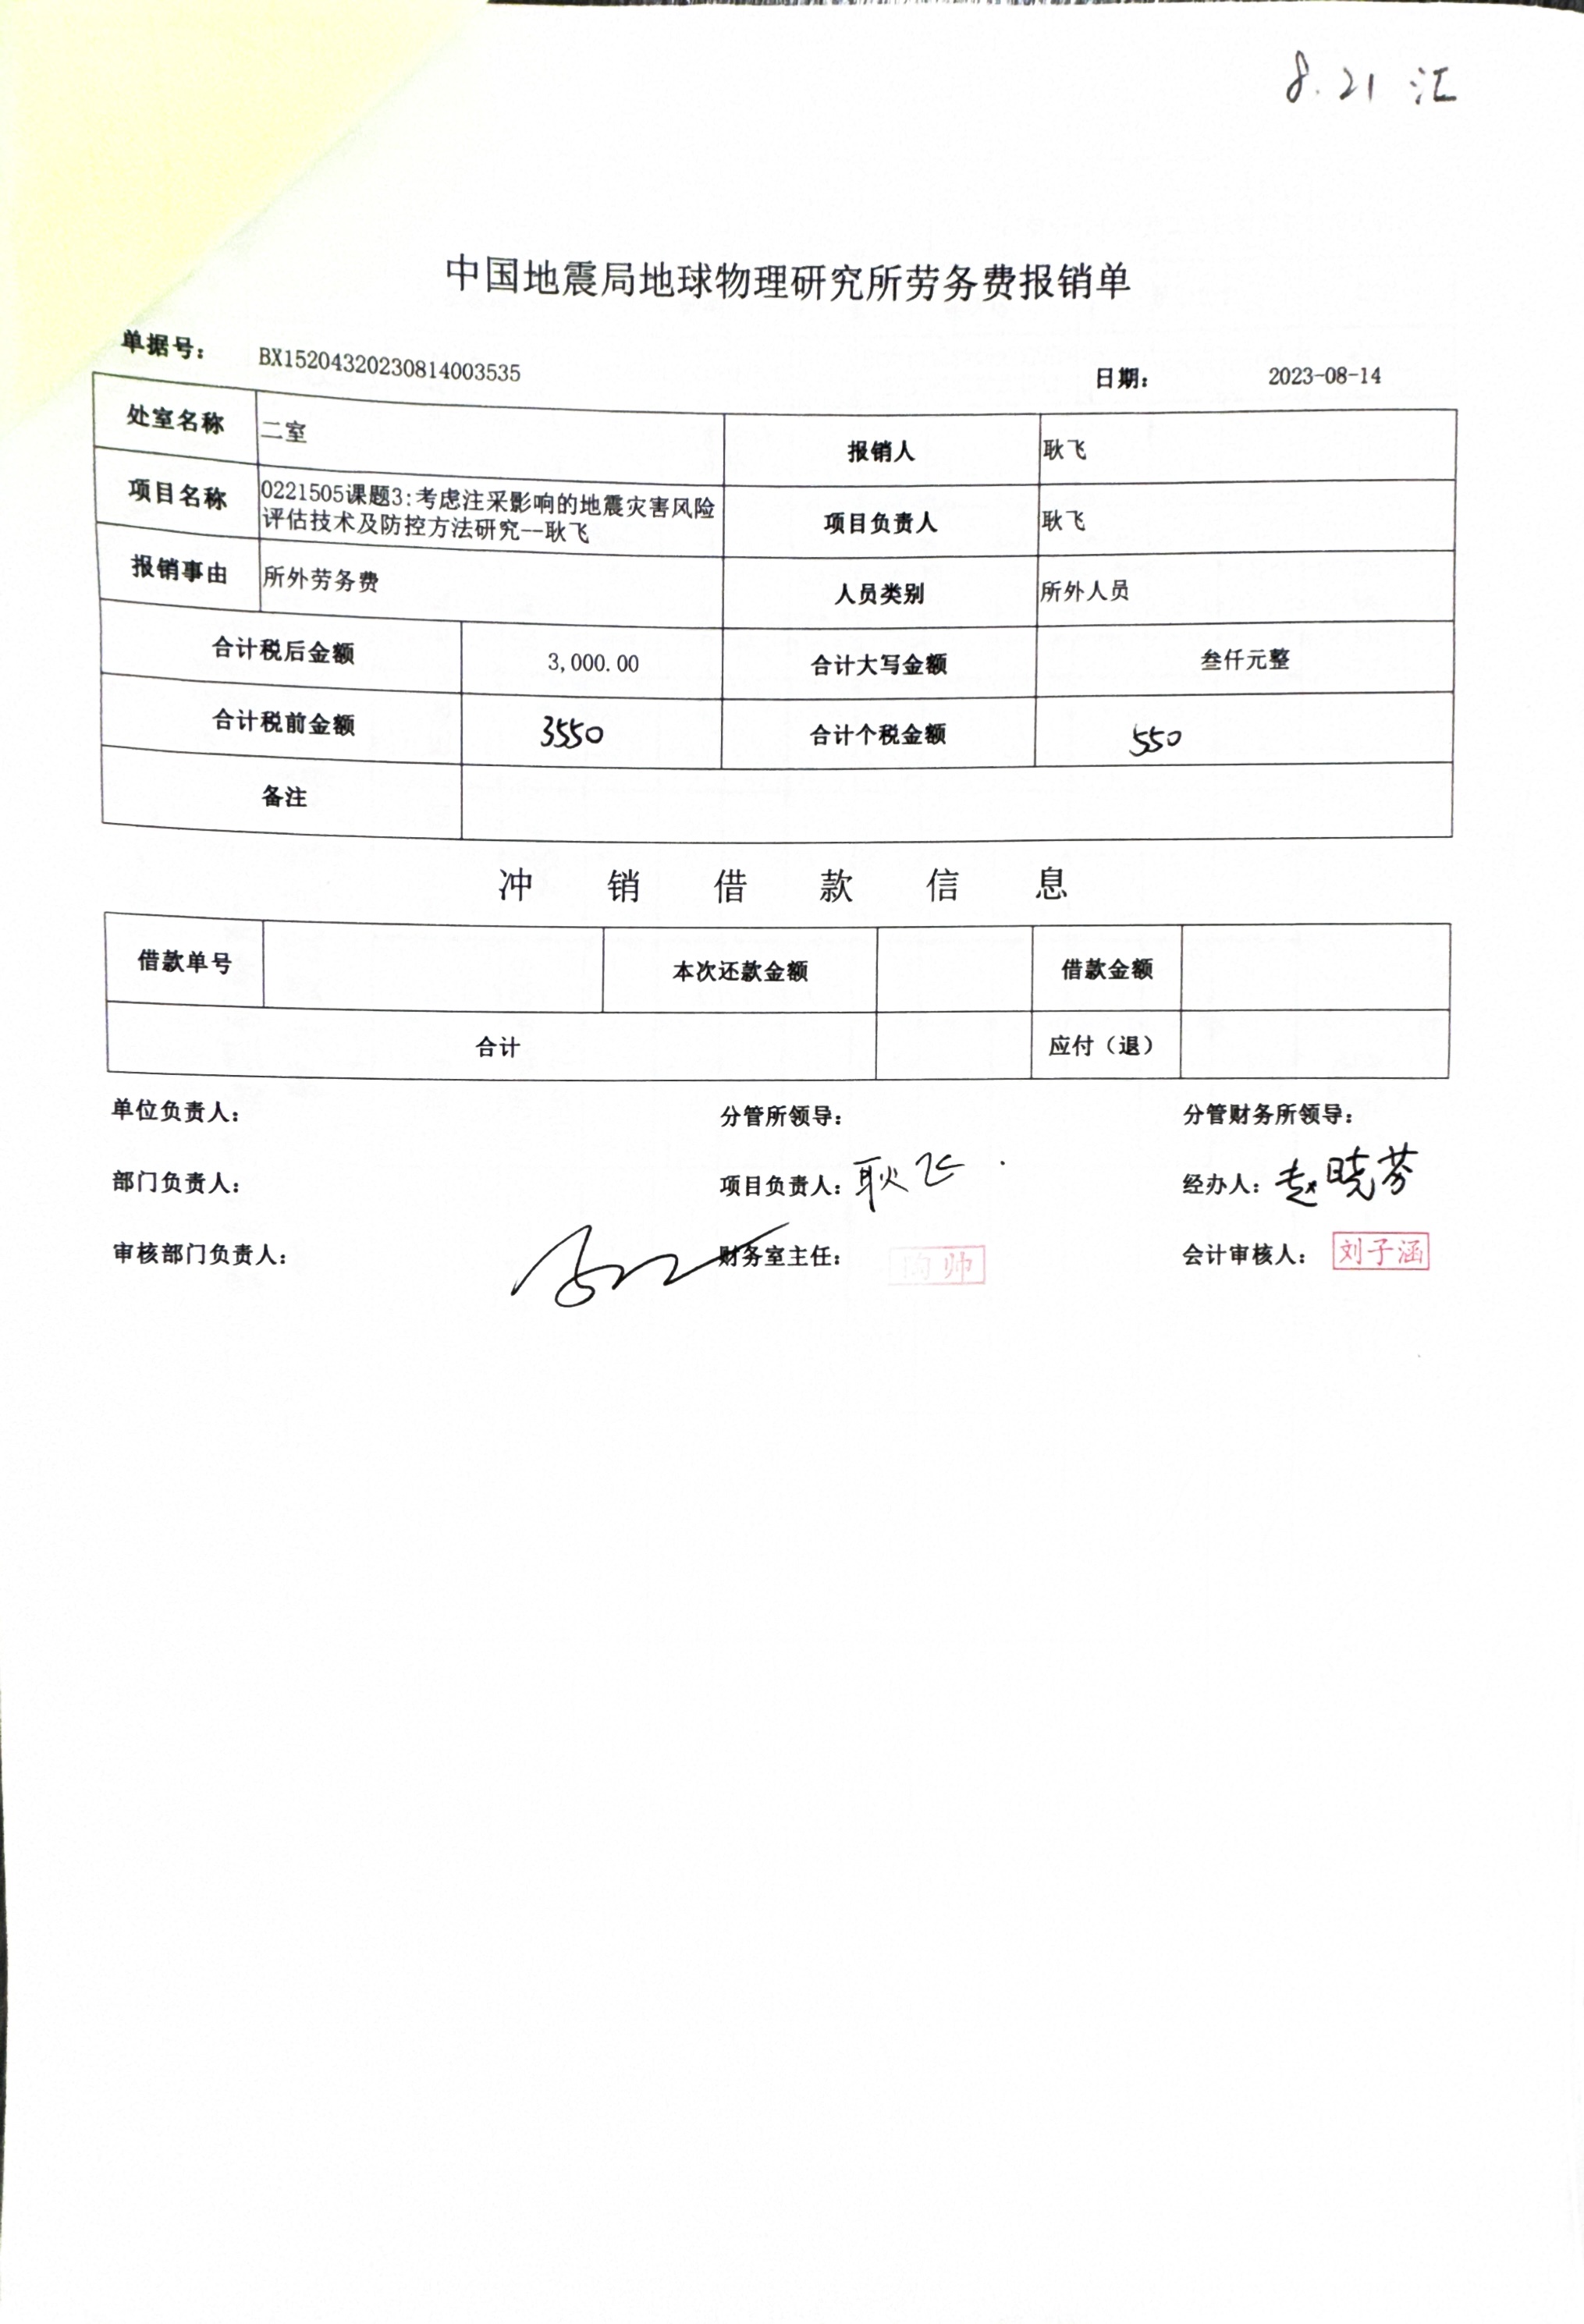 8.21 汇
中国地震局地球物理研究所劳务费报销单
单据号： BX15204320230814003535 日期： 2023-08-14
处室名称 二室 报销人 耿飞
项目名称 0221505课题3:考虑注采影响的地震灾害风险
评估技术及防控方法研究--耿飞 项目负责人 耿飞
报销事由 所外劳务费 人员类别 所外人员
合计税后金额 3,000.00 合计大写金额 叁仟元整
合计税前金额 3550 合计个税金额 550
备注
冲销借款信息
借款单号 本次还款金额 借款金额
合计 应付（退）
单位负责人： 分管所领导： 分管财务所领导：
部门负责人： 项目负责人： 耿飞 经办人： 赵晓芬
审核部门负责人： 财务室主任： 帅 会计审核人： 刘子涵